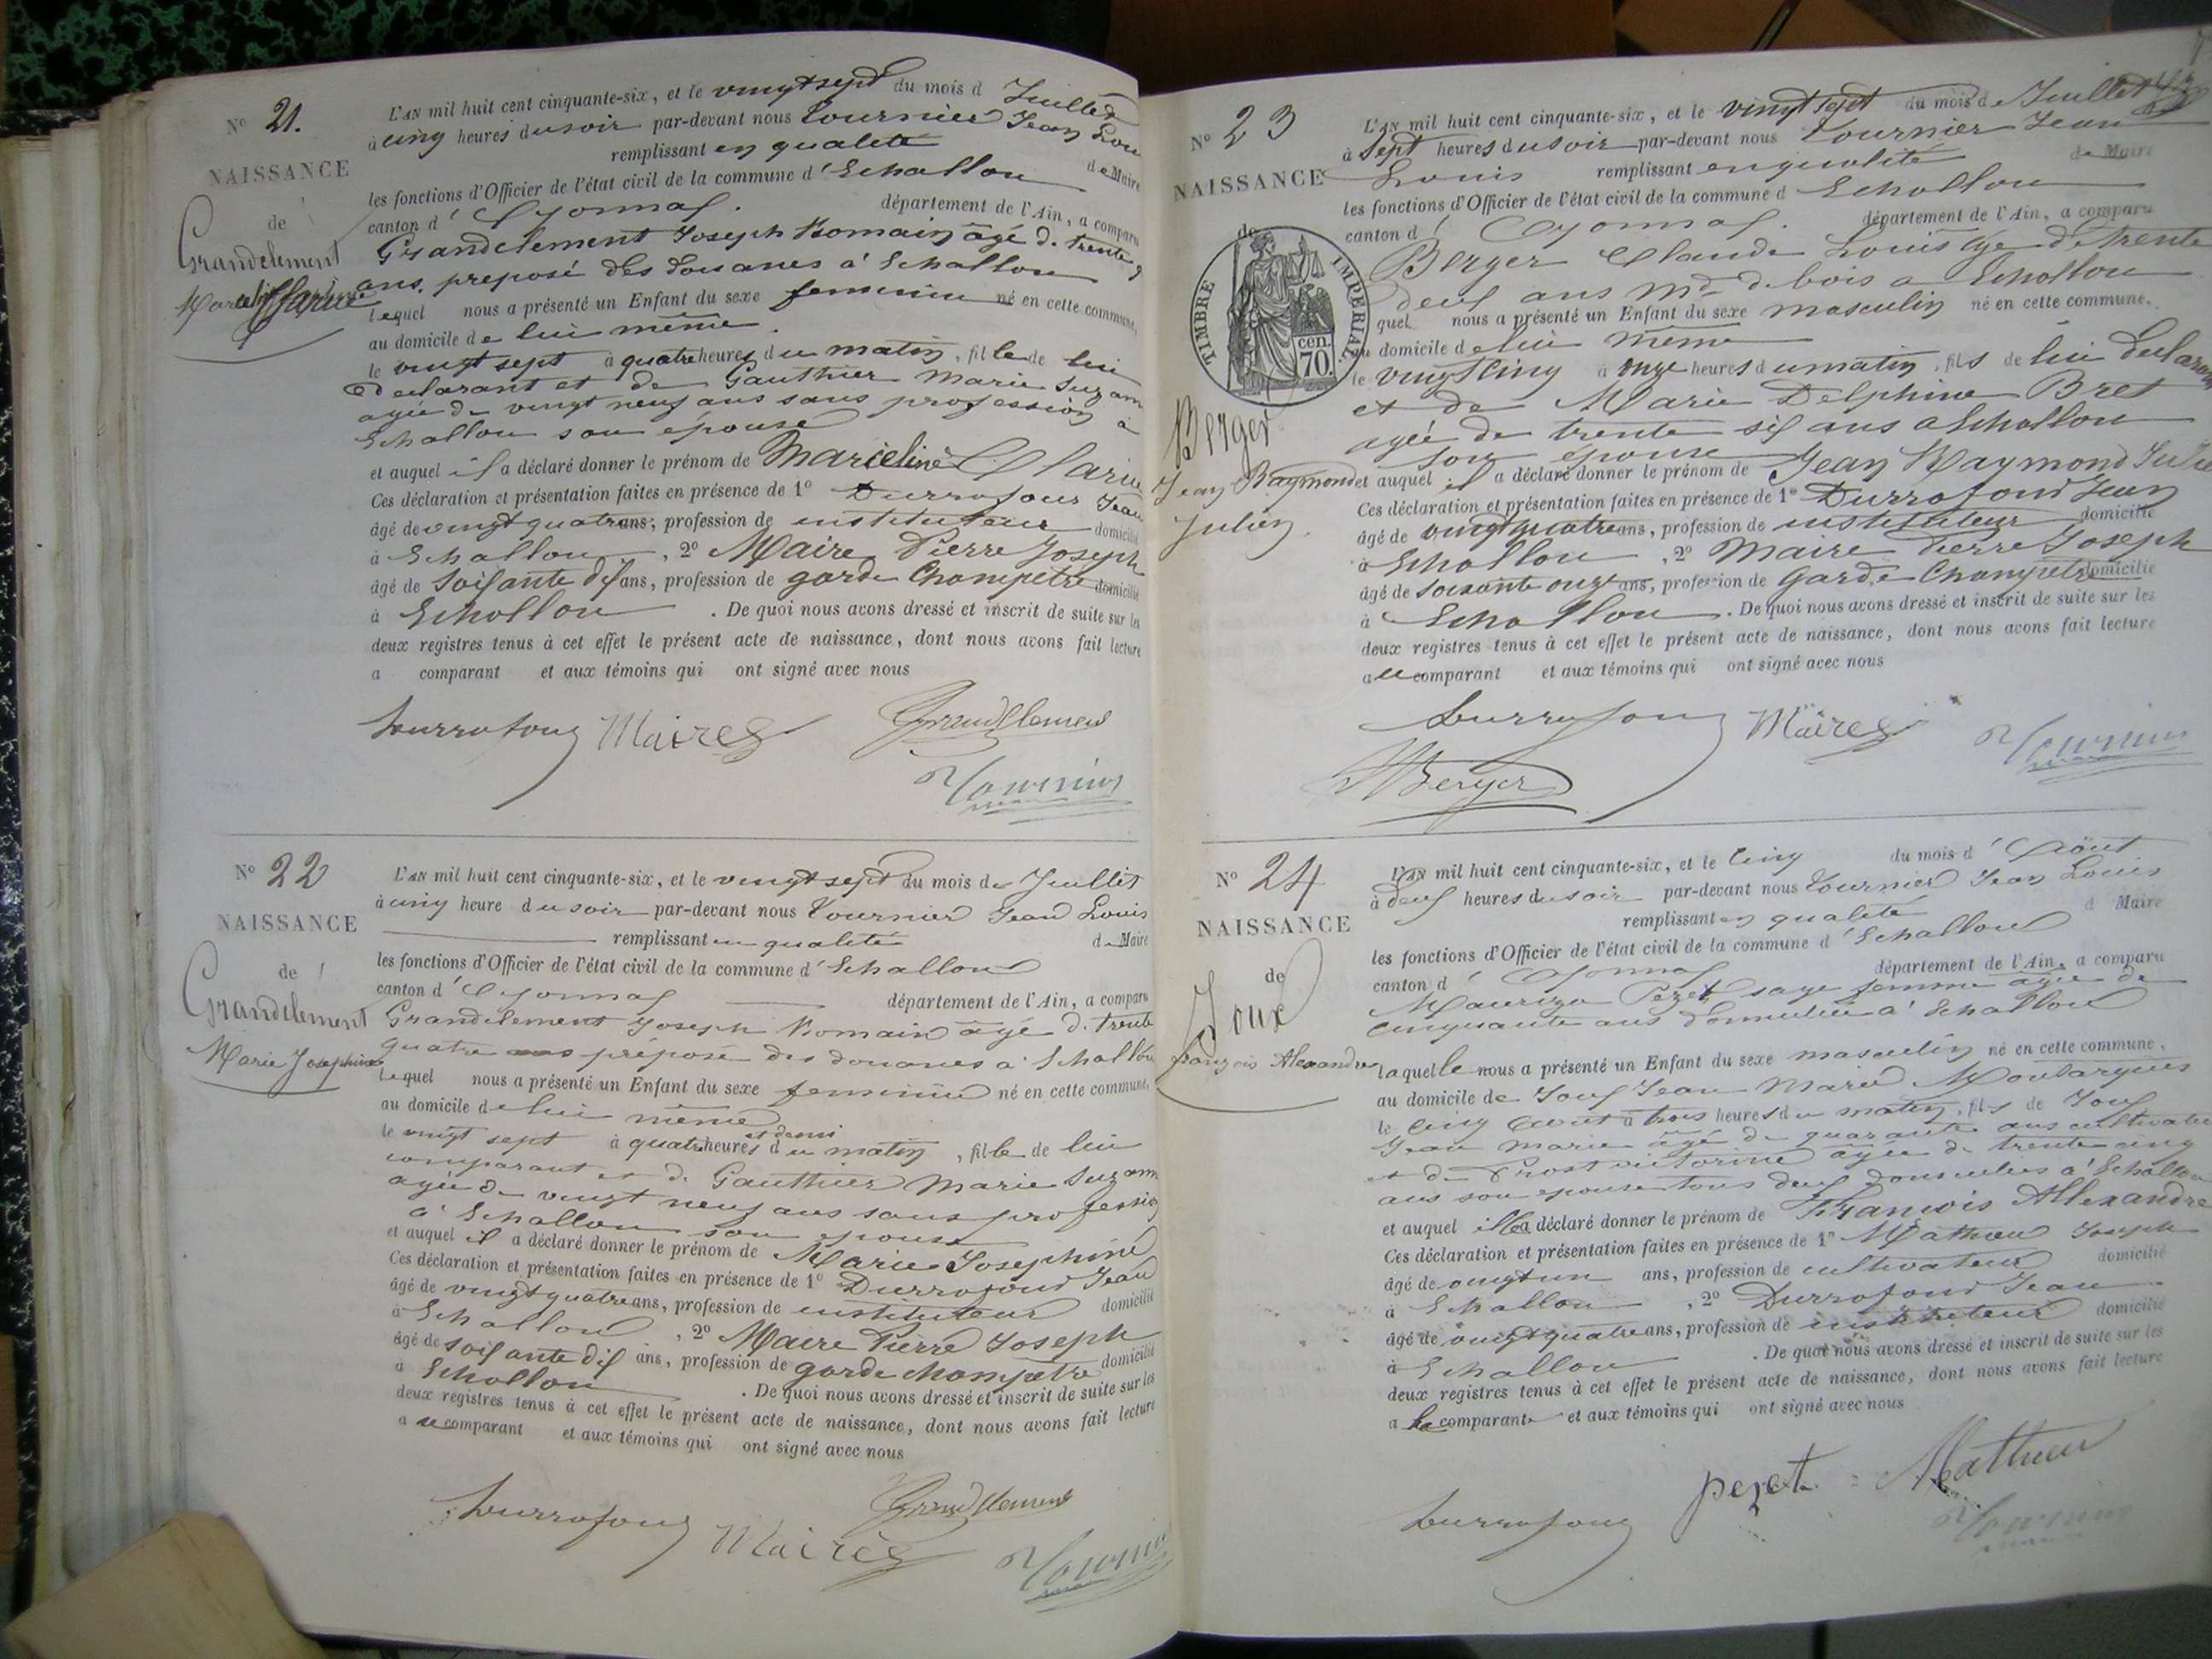 N° 21.
NAISSANCE
de
Grandclement
L'AN mil huit cent cinquante-six, et le vingt sept du mois d Juillet
à cinq heures du soir par-devant nous Tournier Jean Lou
remplissant en qualité de Maire
les fonctions d'Officier de l'état civil de la commune d'Echallon
canton d'Oyonnax. département de l'Ain, a comparu
Grandclement Joseph Romain âgé de trente
ans, preposé des douanes à Echallon
lequel nous a présenté un Enfant du sexe feminin né en cette commune,
au domicile de lui même.
le vingt sept à quatre heures du matin, fille de lui
declarant et de Gauthier Marie Suzann
agée de vingt neuf ans sans profession à
Echallon son épouse
et auquel il a déclaré donner le prénom de Marceline Clarie
Ces déclaration et présentation faites en présence de 1° Durrafour Jean
âgé de vingt quatre ans, profession de instituteur domicilié
à Echallon, 2° Maire Pierre Joseph
âgé de soixante dix ans, profession de garde Champetre domicilié
à Echallon. De quoi nous avons dressé et inscrit de suite sur les
deux registres tenus à cet effet le présent acte de naissance, dont nous avons fait lecture
a comparant et aux témoins qui ont signé avec nous
Durrafour Maire Grandclement
Tournier
N° 22
NAISSANCE
de
Grandclement
Marie Josephine
L'AN mil huit cent cinquante-six, et le vingt sept du mois de Juillet
à cinq heure du soir par-devant nous Tournier Jean Louis
remplissant en qualité de Maire
les fonctions d'Officier de l'état civil de la commune d'Echallon
canton d'Oyonnax département de l'Ain, a comparu
Grandclement Joseph Romain âgé de trente
quatre ans préposé des douanes à Echallon
lequel nous a présenté un Enfant du sexe feminin né en cette commune,
au domicile de lui même
et demi
le vingt sept à quatre heures du matin, fille de lui
comparant et de Gauthier Marie Suzann
agée de vingt neuf ans sans profession
à Echallon son épouse
et auquel il a déclaré donner le prénom de Marie Josephine
Ces déclaration et présentation faites en présence de 1° Durrafour Jean
âgé de vingt quatre ans, profession de instituteur domicilié
à Echallon, 2° Maire Pierre Joseph
âgé de soixante dix ans, profession de garde champetre domicilié
à Echallon. De quoi nous avons dressé et inscrit de suite sur les
deux registres tenus à cet effet le présent acte de naissance, dont nous avons fait lecture
a le comparant et aux témoins qui ont signé avec nous
Durrafour Maire Grandclement
Tournier
N° 23
NAISSANCE
de
TIMBRE IMPÉRIAL
cen.
70.
Berger
Jean Raymond
Julien
L'AN mil huit cent cinquante-six, et le vingt sept du mois de Juillet
à sept heures du soir par-devant nous Tournier Jean
Louis remplissant en qualité de Maire
les fonctions d'Officier de l'état civil de la commune d Echallon
canton d'Oyonnax. département de l'Ain, a comparu
Berger Claude Louis âge de trente
deux ans md de bois a Echallon
quel nous a présenté un Enfant du sexe masculin né en cette commune.
au domicile de lui même
le vingt cinq à onze heures du matin, fils de lui declarant
et de Marie Delphine Bret
agée de trente six ans a Echallon
son epouse
et auquel il a déclaré donner le prénom de Jean Raymond Julie
Ces déclaration et présentation faites en présence de 1° Durrafour Jean
âgé de vingt quatre ans, profession de instituteur domicilié
à Echallon, 2° Maire Pierre Joseph
âgé de soixante onze ans, profession de Garde Champetre domicilié
à Echallon. De quoi nous avons dressé et inscrit de suite sur les
deux registres tenus à cet effet le présent acte de naissance, dont nous avons fait lecture
a le comparant et aux témoins qui ont signé avec nous
Durrafour Maire Tournier
Berger
N° 24
NAISSANCE
de
Joux
françois Alexandre
L'AN mil huit cent cinquante-six, et le cinq du mois d'Août
à deux heures du soir par-devant nous Tournier Jean Louis
remplissant en qualité d Maire
les fonctions d'Officier de l'état civil de la commune d'Echallon
canton d'Oyonnax département de l'Ain, a comparu
Pezet sage femme agée de
cinquante ans domiciliée à Echallon
laquelle nous a présenté un Enfant du sexe masculin né en cette commune,
au domicile de Joux Jean Marie
le cinq août à trois heures du matin, fils de Joux
Jean Marie âgé de quarante ans cultivateur
et de Prost victorine agée de trente cinq
ans son epouse tous deux domiciliés à Echallon
et auquel elle a déclaré donner le prénom de François Allexandre
Ces déclaration et présentation faites en présence de 1° Mathieu Joseph
âgé de vingt un ans, profession de cultivateur domicilié
à Echallon, 2° Durrafour Jean
âgé de vingt quatre ans, profession de instituteur domicilié
à Echallon. De quoi nous avons dressé et inscrit de suite sur les
deux registres tenus à cet effet le présent acte de naissance, dont nous avons fait lecture
a la comparante et aux témoins qui ont signé avec nous
pezet Mathieu
Durrafour Tournier